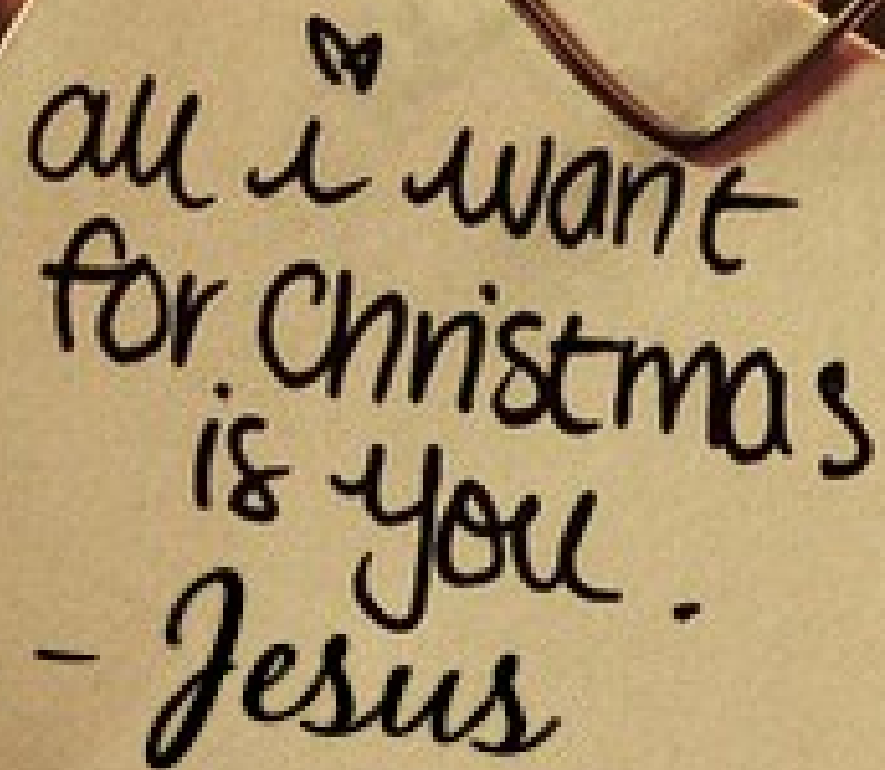 all i want
for Christmas
is you.
- Jesus